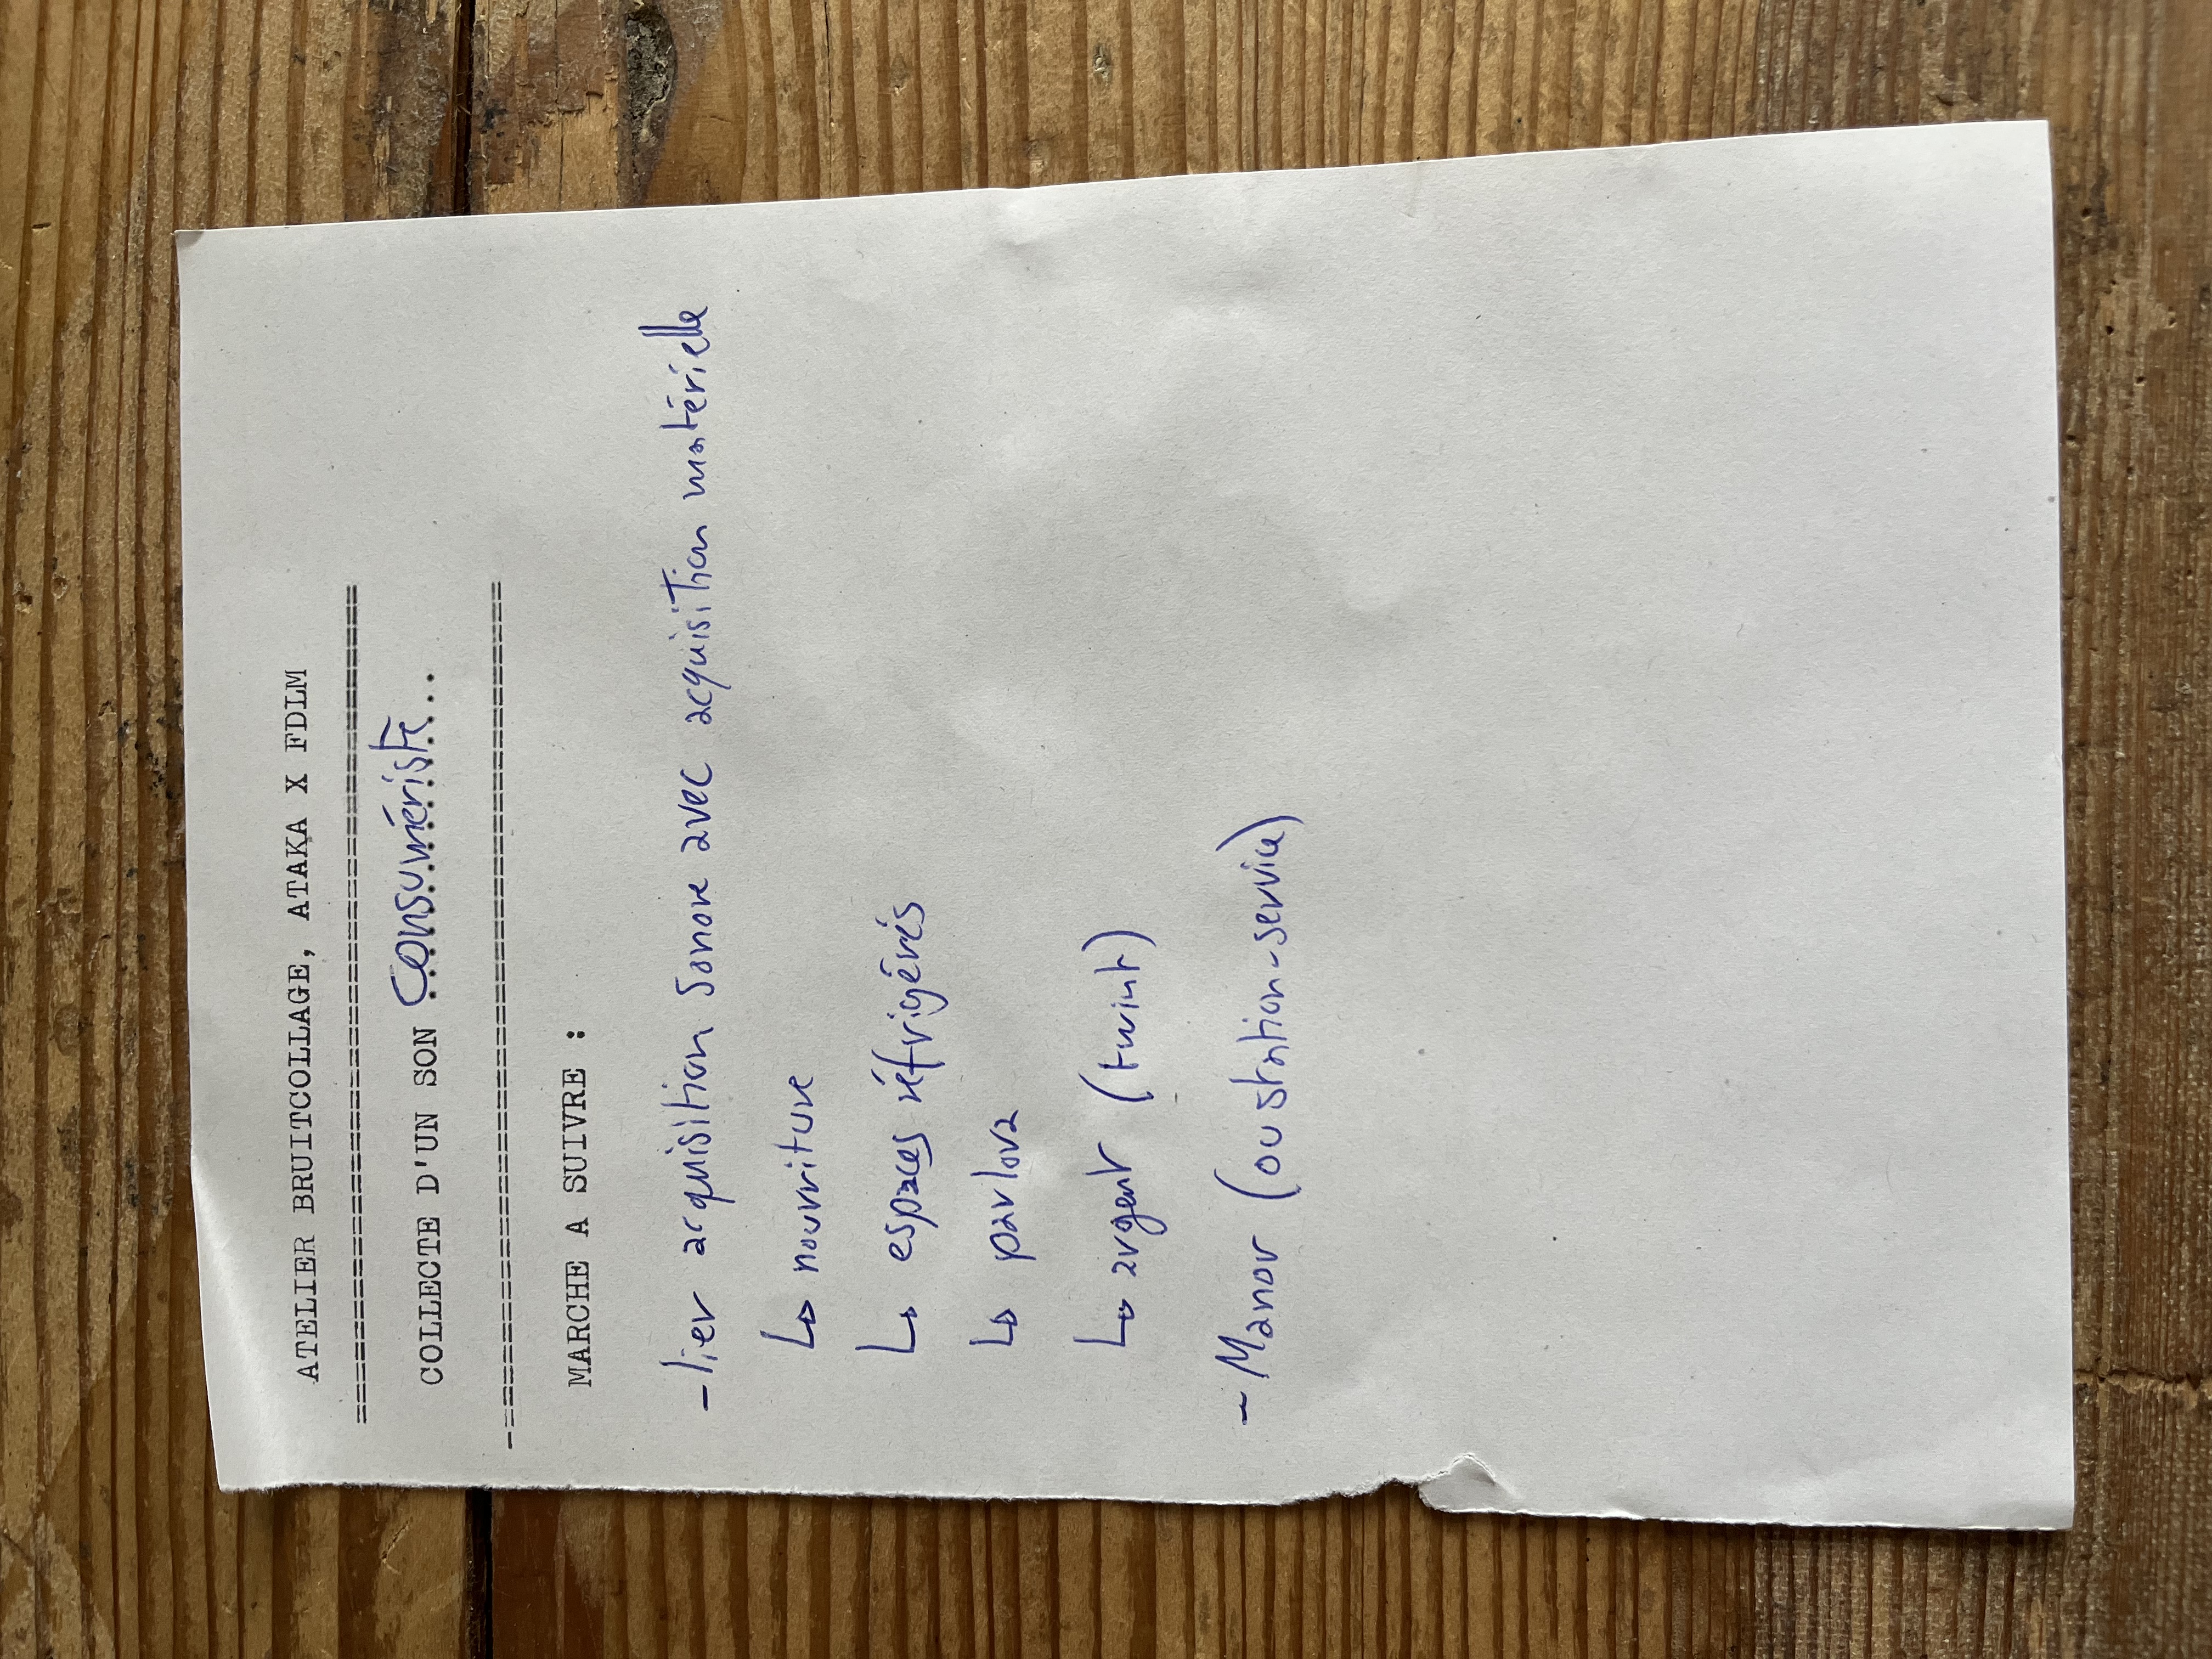 ATELIER BRUITCOLLAGE, ATAKA X FDLM
==================================================
COLLECTE D'UN SON consumériste...
-==================================================
MARCHE A SUIVRE :
- lier acquisition sonore avec acquisition matérielle
↳ nourriture
↳ espaces réfrigérés
↳ parlova
↳ argent (twint)
- Manor (ou station-service)